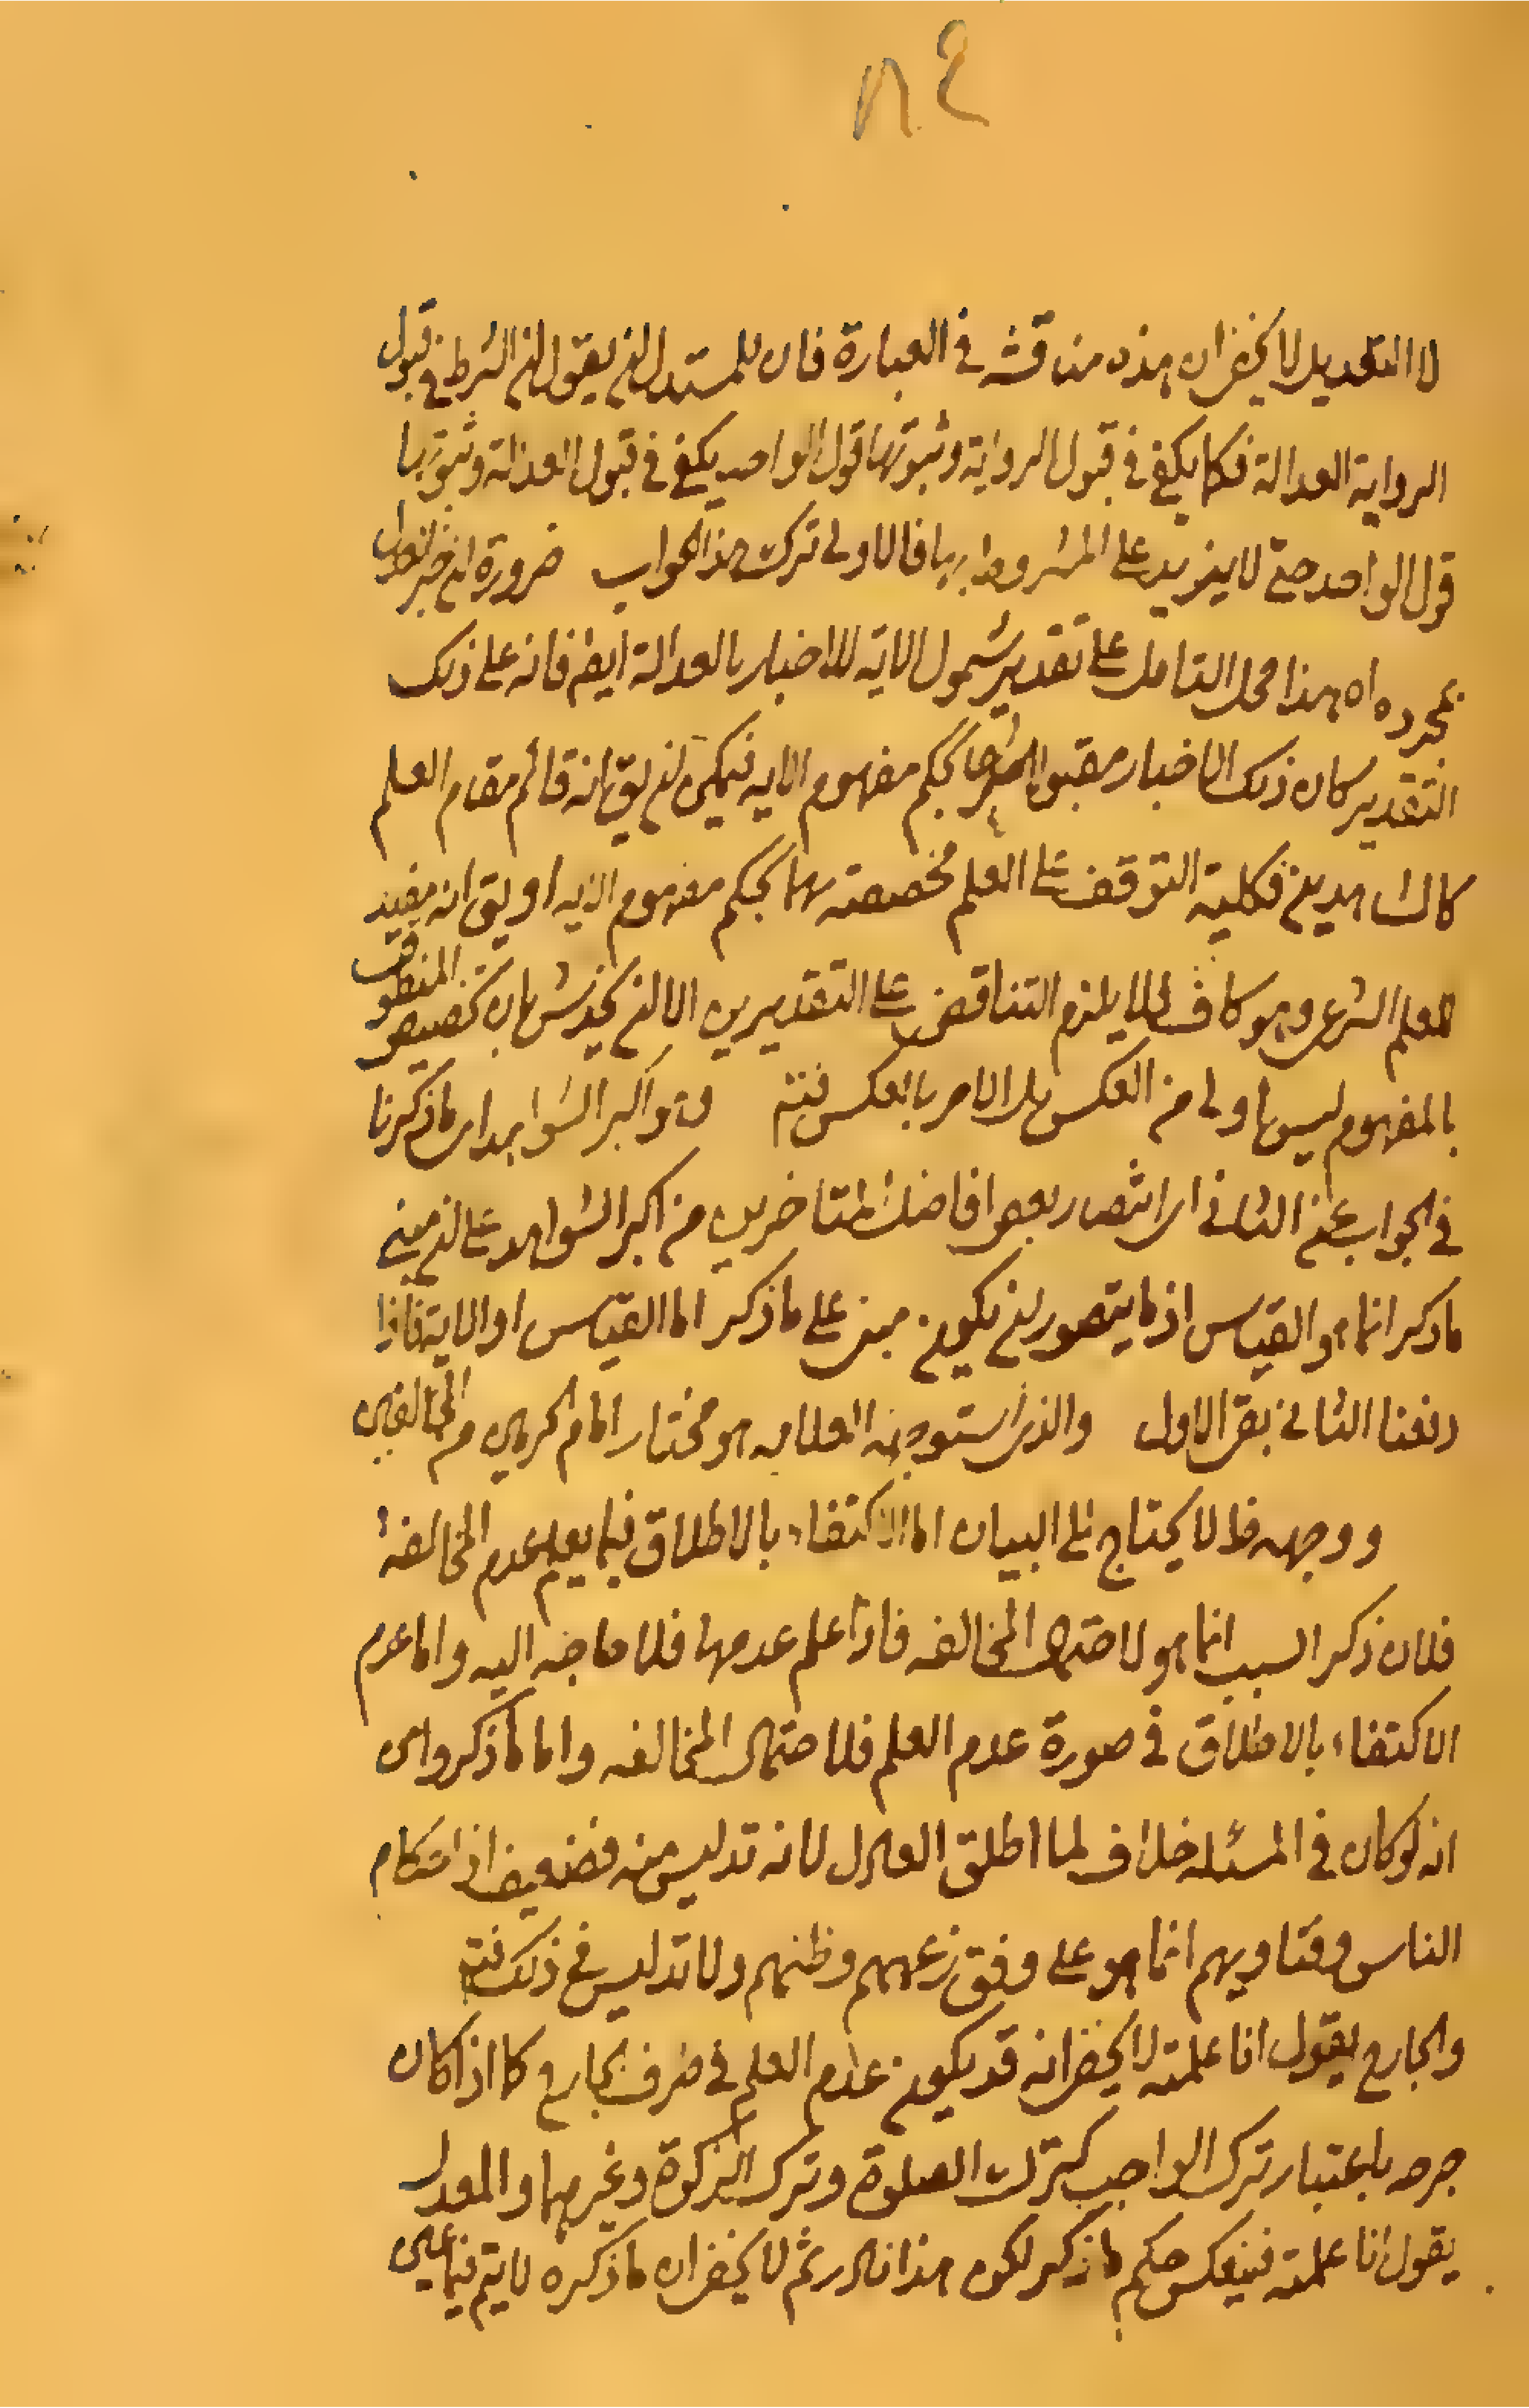 لا التعديل لا يخفى ان هذه مناقشة في العبارة فان للمستدل ان يقول ان الشرط في قبول
الرواية العدالة فكما يكفي في قبول الرواية وثبوتها قول الواحد يكفي في قبول العدالة وثبوتها
قول الواحد حتى لا يزيد على المشروط بها فالاولى ترك هذا الجواب ضرورة ان خبر العدل
بمجرده اه هذا محل التامل على تقدير شمول الاية للاخبار بالعدالة ايضا فانه على ذلك
التقدير كان ذلك الاخبار مقبولا شرعا بحكم مفهوم الاية فيمكن ان يق انه قائم مقام العلم
كالشاهدين فكلية التوقف على العلم مخصصة بهما بحكم مفهوم الاية او يق انه مفيد
للعلم الشرعي وهو كاف فلا يلزم التناقض على التقديرين الا ان يخدش بان تخصيص المنطوق
بالمفهوم ليس باولى من العكس بل الامر بالعكس فتم قوله واكبر الشواهد ما ذكرنا
في الجواب عن الثاني اي انتصار بعض افاضل المتاخرين من اكبر الشواهد على ان مبنى
ما ذكر انما هو القياس اذ ما يتصور ان يكون مبنى على ما ذكر اما القياس او الاية فاذا
دفعنا الثاني بقي الاول والذي استوجهه العلامة هو مختار امام الحرمين من المخالفين
ووجهه ظ لا يحتاج الى البيان اما الاكتفاء بالاطلاق فيما يعلم عدم المخالفة
فلان ذكر السبب انما هو لاحتمال المخالفه فاذا علم عدمها فلا حاجة اليه واما عدم
الاكتفاء بالاطلاق في صورة عدم العلم فلاحتمال المخالفه واما ما ذكروا من
انه لو كان في المسئلة خلاف لما اطلق العدل لانه تدليس منه فضعيف اذ احكام
الناس وفتاويهم انما هو على وفق زعمهم وظنهم ولا تدليس في ذلك فتم
والجارح يقول انا علمته لا يخفى انه قد يكون عدم العلم في طرف الجارح كما اذا كان
جرحه باعتبار ترك الواجب كترك الصلوة وترك الزكوة وغيرهما والمعدل
يقول انا علمته فينعكس حكم ما ذكر لكن هذا نادر ثم لا يخفى ان ما ذكره لا يتم فيما